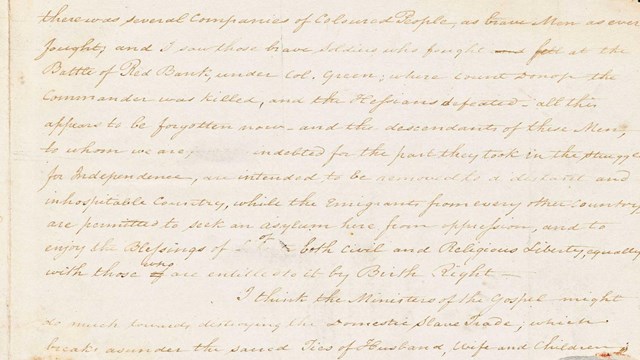 there was several Companies of Coloured People, as brave Men as ever
fought; and I saw those brave Soldiers who fought at the
Battle of Red Bank, under Col. Green; where Count Donop the
Commander was killed, and the Hessians defeated – all this
appears to be forgotten now – and the descendants of these Men,
to whom we are, indebted for the part they took in the Struggle
for Independence, are intended to be removed to a distant and
inhospitable Country, while the Emigrants from every other Country,
are permitted to seek an asylum here from oppression, and to
enjoy the Blessings of both Civil and Religious Liberty, equally
with those who are entitled to it by Birth Right –
I think the Ministers of the Gospel might
do much towards destroying the Domestic Slave Trade, which
breaks asunder the sacred Ties of Husband, Wife and Children;